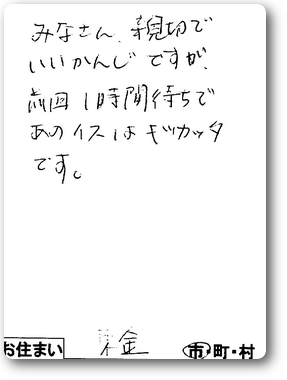 みなさん、親切で
いいかんじですが、
前回1時間待ちで
あのイスはキツカッタ
です。
お住まい 金 市・町・村